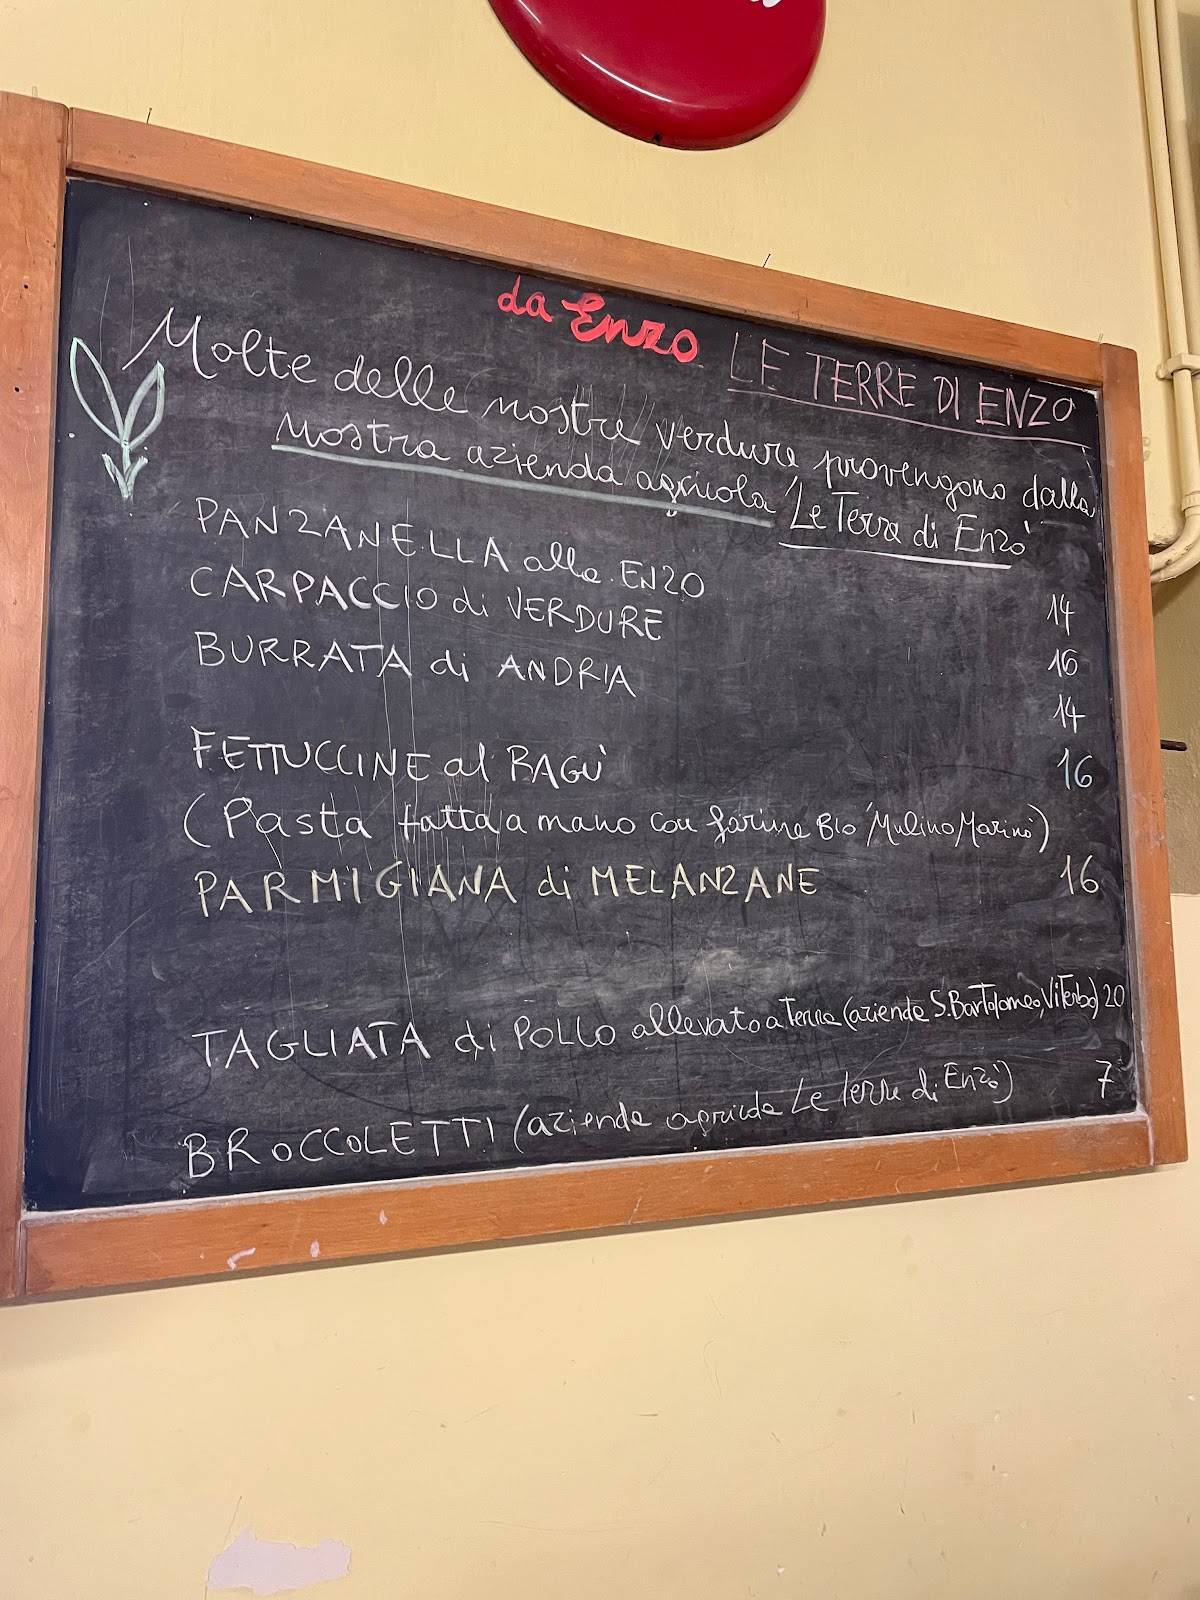 da Enzo LE TERRE DI ENZO
Molte delle nostre verdure provengono dalla
nostra azienda agricola 'Le Terre di Enzo'
PANZANELLA alla ENZO 14
CARPACCIO di VERDURE 16
BURRATA di ANDRIA 14
FETTUCCINE al RAGÙ 16
(Pasta fatta a mano con farine BIO 'Mulino Marino')
PARMIGIANA di MELANZANE 16
TAGLIATA di POLLO allevato a Terra (azienda S.Bartolomeo, Viterbo) 20
BROCCOLETTI (azienda agricola Le Terre di Enzo) 7